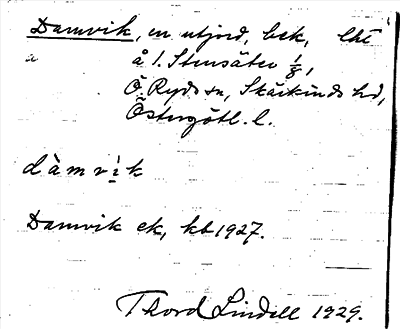 Damvik, en utjord, bek, lht
å 1. Stensäter 1/8,
Ö. Ryds sn, Skärkinds hd,
Östergötl. l.
dàmvìk
Damvik ek, kb 1927.
Thord Lindell 1929.